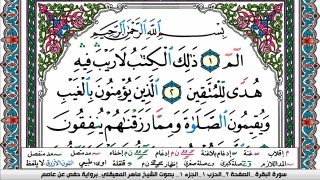 بِسْمِ اللَّهِ الرَّحْمَٰنِ الرَّحِيمِ
الٓمٓ ۝١ ذَٰلِكَ الْكِتَٰبُ لَا رَيْبَ فِيهِ
هُدًى لِّلْمُتَّقِينَ ۝٢ الَّذِينَ يُؤْمِنُونَ بِالْغَيْبِ
وَيُقِيمُونَ الصَّلَوٰةَ وَمِمَّا رَزَقْنَٰهُمْ يُنفِقُونَ
سورة البقرة . الصفحة ٢ . الجزء ١ . الحزب ١ بصوت الشيخ ماهر المعيقلي . برواية حفص عن عاصم